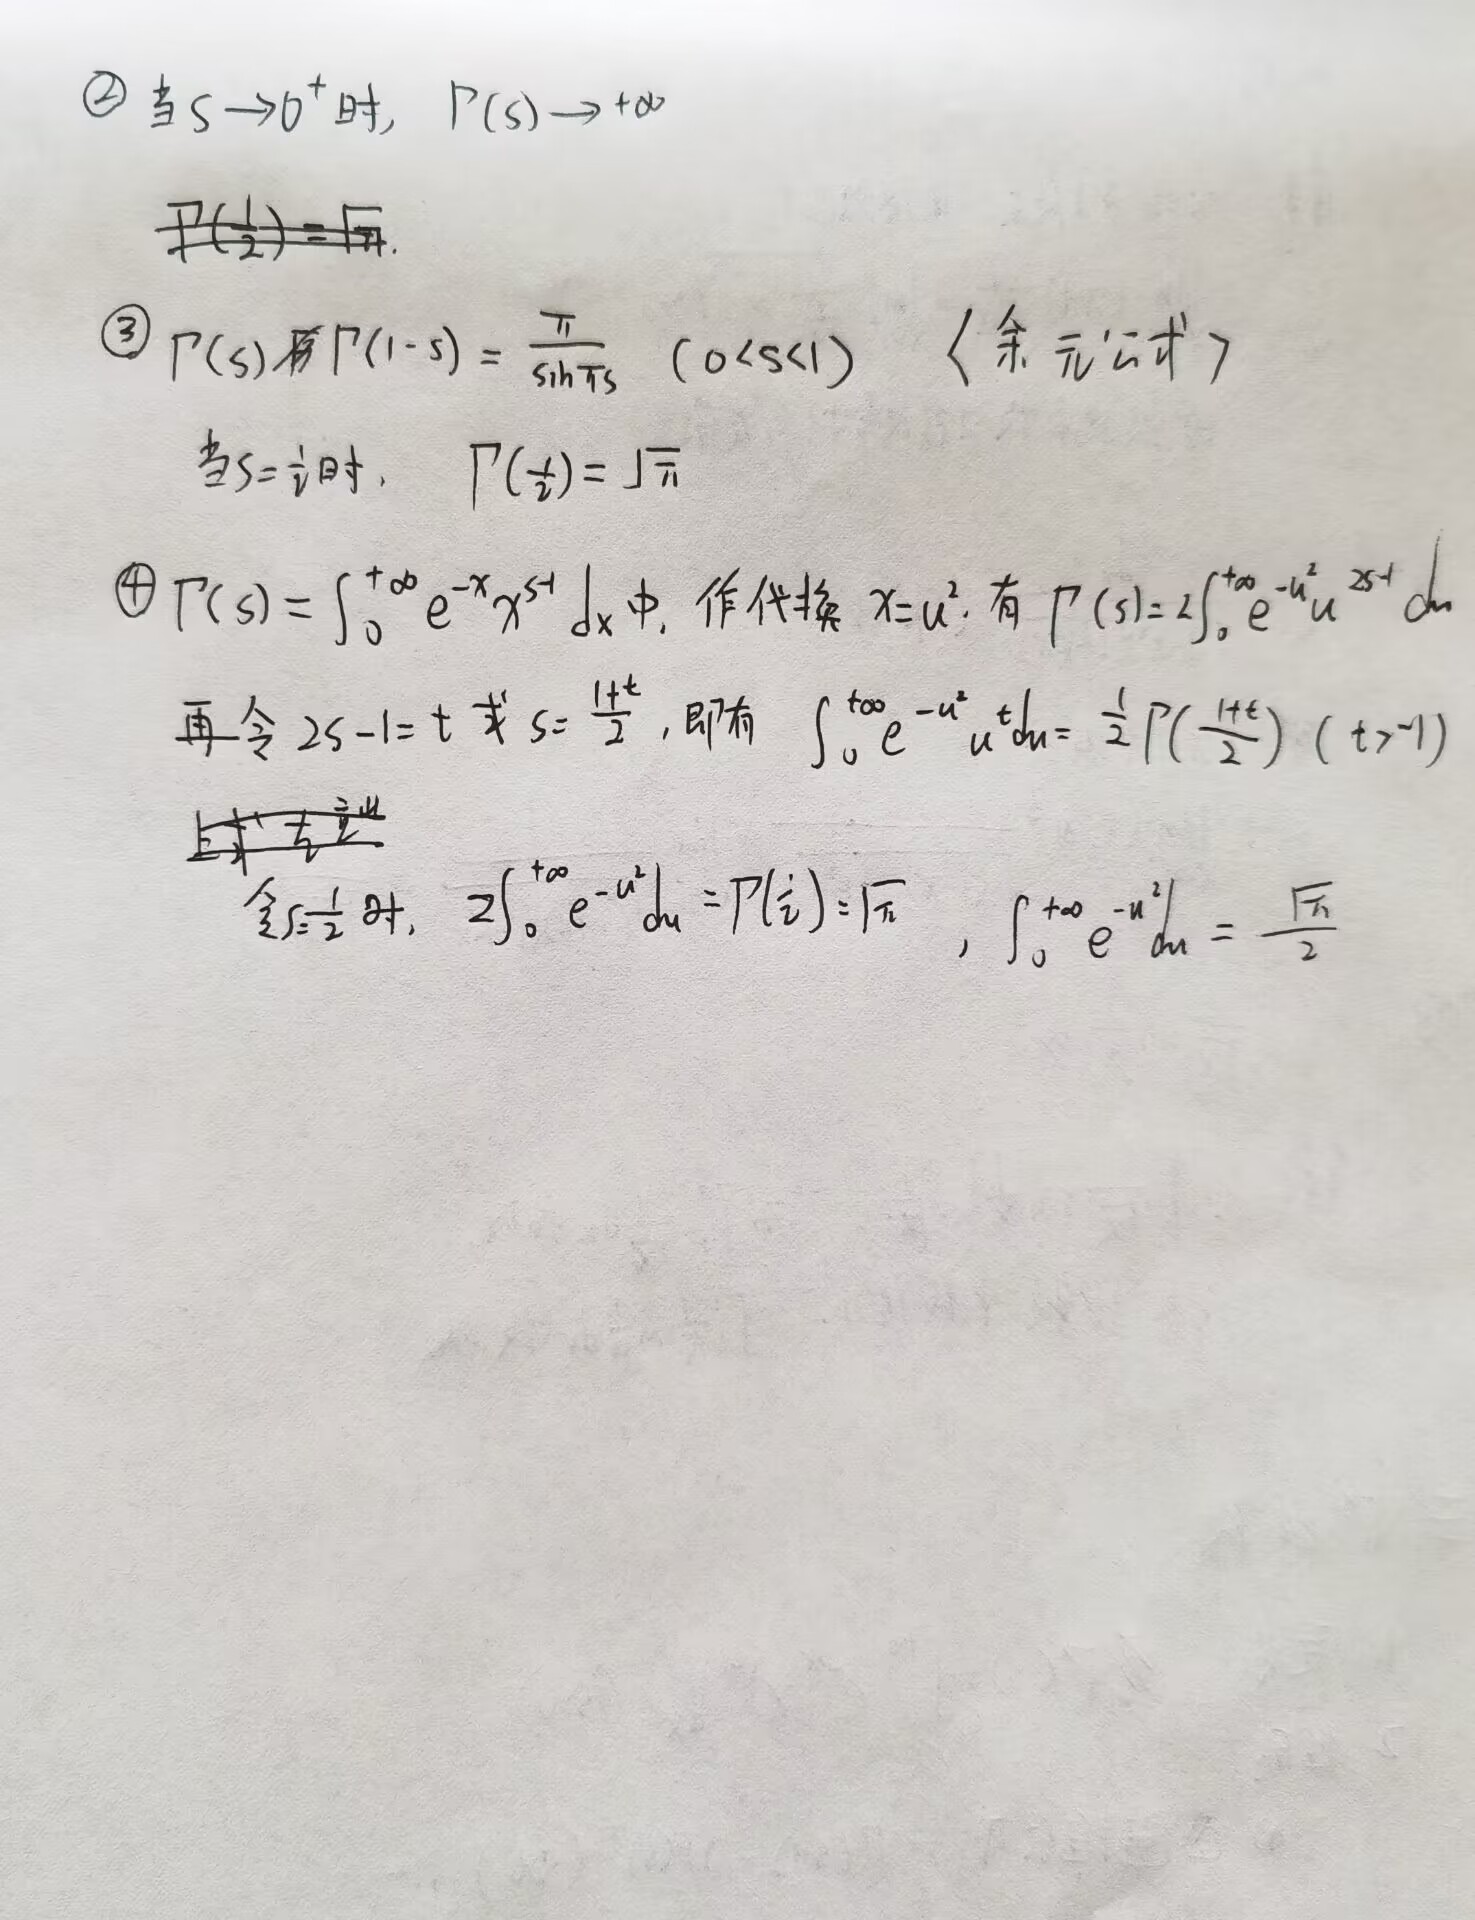 ② 当s→0⁺时, Γ(s)→+∞
Γ(1/2)=√π.
③ Γ(s)Γ(1-s) = π/sinπs (0<s<1) 〈余元公式〉
当s=1/2时, Γ(1/2)=√π
④ Γ(s)=∫₀^{+∞} e^{-x} x^{s-1} dx中, 作代换 x=u². 有 Γ(s)=2∫₀^{+∞} e^{-u²} u^{2s-1} du
再令 2s-1=t 或 s=(1+t)/2, 即有 ∫₀^{+∞} e^{-u²} u^t du = 1/2 Γ((1+t)/2) (t>-1)
令s=1/2时, 2∫₀^{+∞} e^{-u²} du = Γ(1/2) = √π , ∫₀^{+∞} e^{-u²} du = √π/2